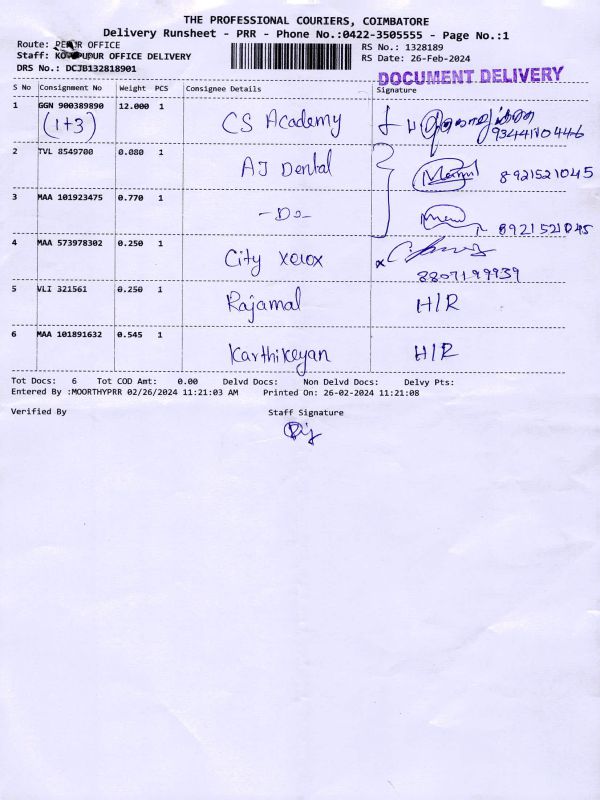 THE PROFESSIONAL COURIERS, COIMBATORE
Delivery Runsheet - PRR - Phone No.:0422-3505555 - Page No.:1
Route: OFFICE
Staff: OFFICE DELIVERY
DRS No.: DCJB132818901
RS No.: 1328189
RS Date: 26-Feb-2024
DOCUMENT DELIVERY
S No Consignment No Weight PCS Consignee Details Signature
1 GGN 900389890 12.000 1 CS Academy
(1+3) 9344110446
2 TVL 8549700 0.080 1 AJ Dental 8921521045
3 MAA 101923475 0.770 1 -Do- 8921521045
4 MAA 573978302 0.250 1 City xerox
8807199939
5 VLI 321561 0.250 1 Rajamal H/R
6 MAA 101891632 0.545 1 Karthikeyan H/R
Tot Docs: 6 Tot COD Amt: 0.00 Delvd Docs: Non Delvd Docs: Delvy Pts:
Entered By :MOORTHYPRR 02/26/2024 11:21:03 AM Printed On: 26-02-2024 11:21:08
Verified By Staff Signature